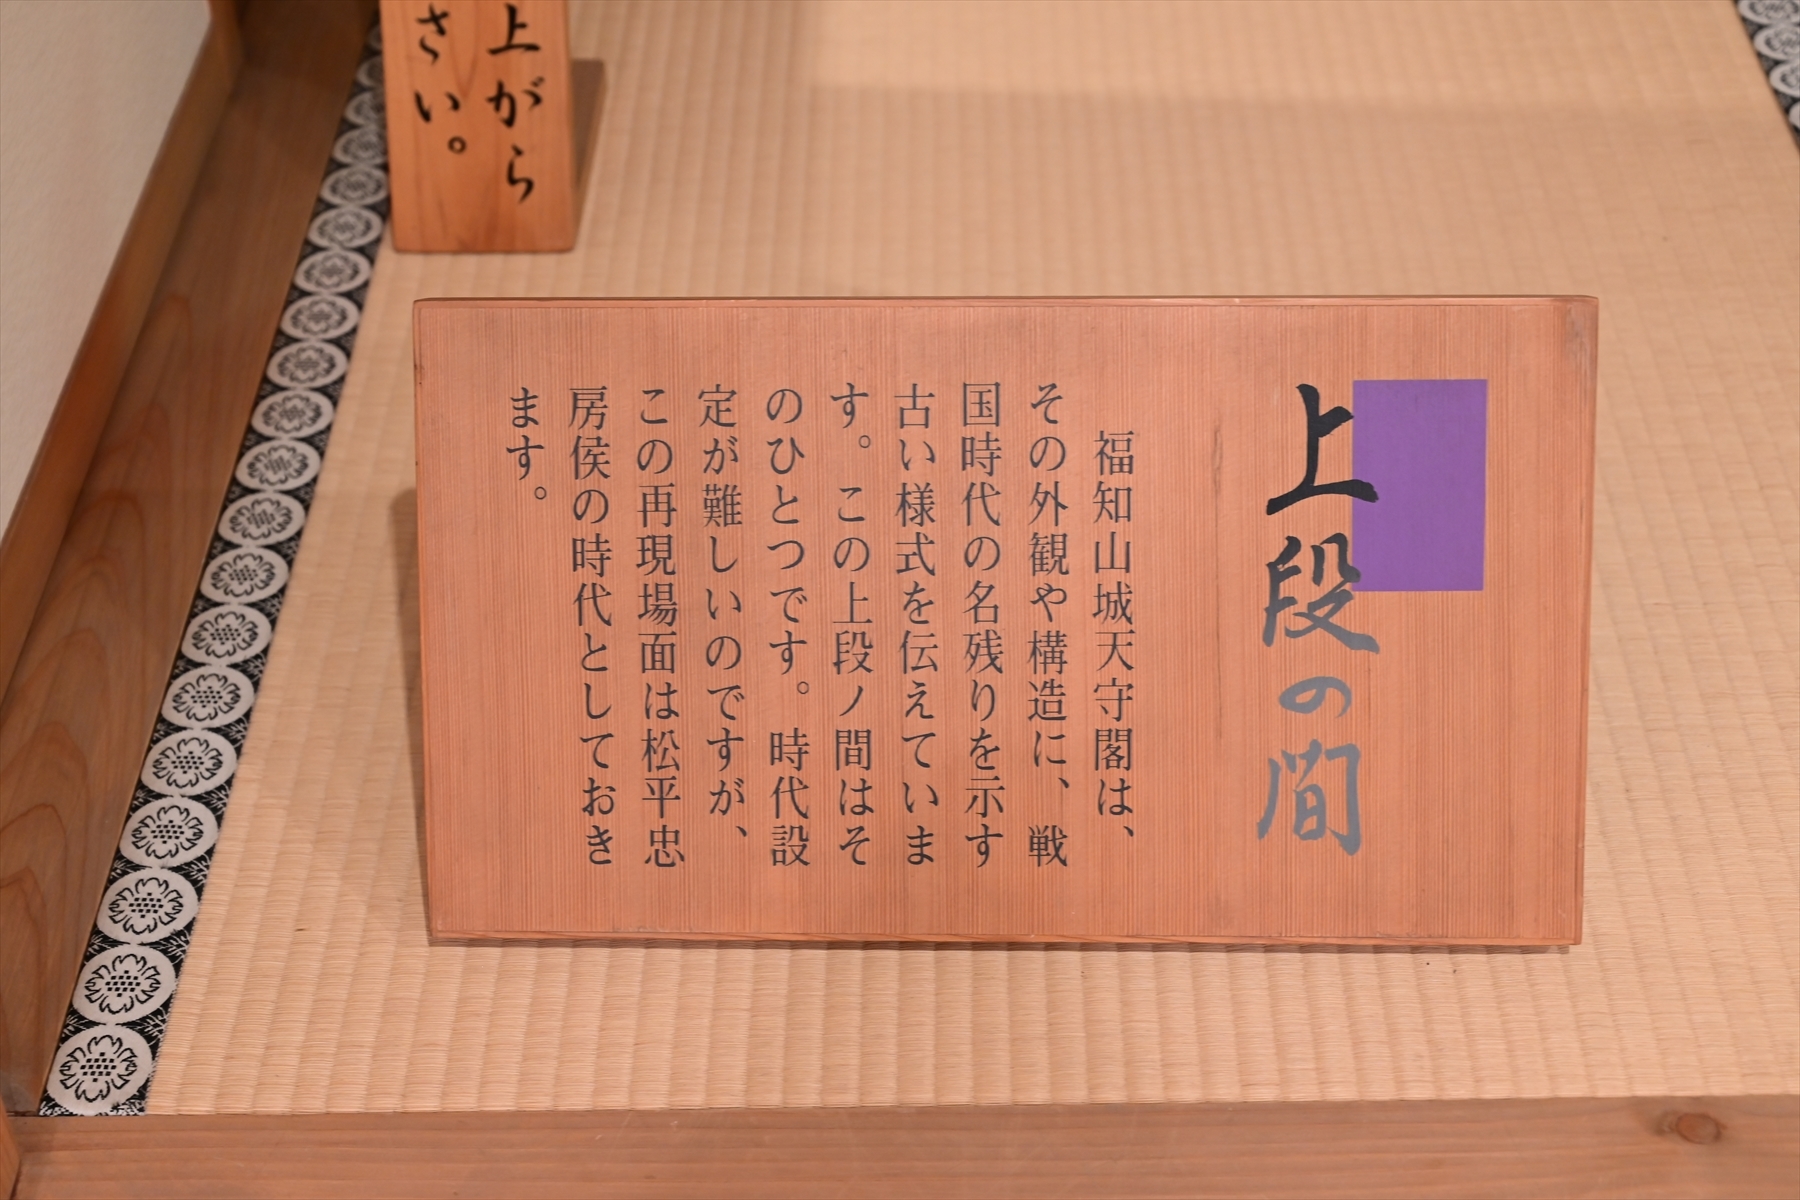 上段の間
福知山城天守閣は、
その外観や構造に、戦
国時代の名残りを示す
古い様式を伝えていま
す。この上段ノ間はそ
のひとつです。時代設
定が難しいのですが、
この再現場面は松平忠
房侯の時代としておき
ます。
上がら
さい。